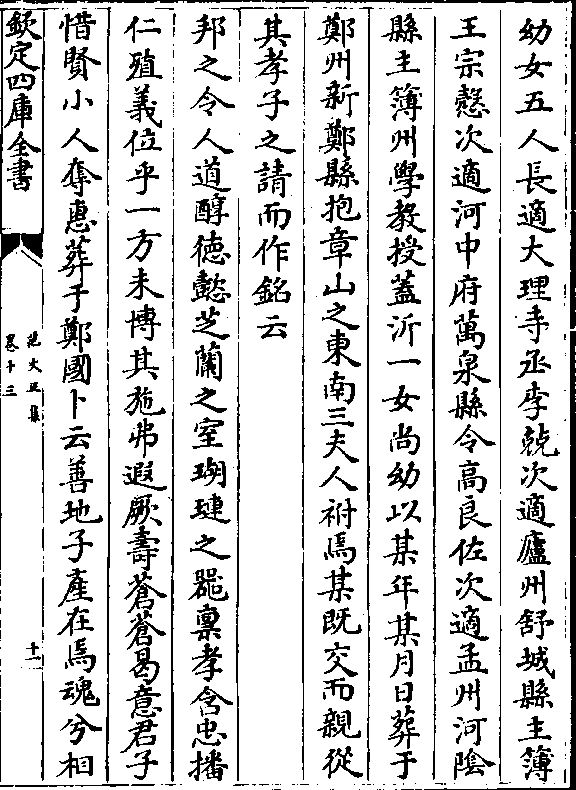 幼女五人長適大理寺丞李兢次適廬州舒城縣主簿
王宗慤次適河中府萬泉縣令高良佐次適孟州河隂
縣主簿州學教授蓋沂一女尚幼以某年某月日葬于
鄭州新鄭縣抱章山之東南三夫人祔焉某既交而親從
其孝子之請而作銘云
邦之令人道醇徳懿芝蘭之室瑚璉之器禀孝含忠播
仁殖義位乎一方未博其施弗遐厥壽蒼蒼曷意君子
惜賢小人奪惠葬于鄭國卜云善地子產在焉魂兮相
欽定四庫全書
范文正集
卷十三
十一